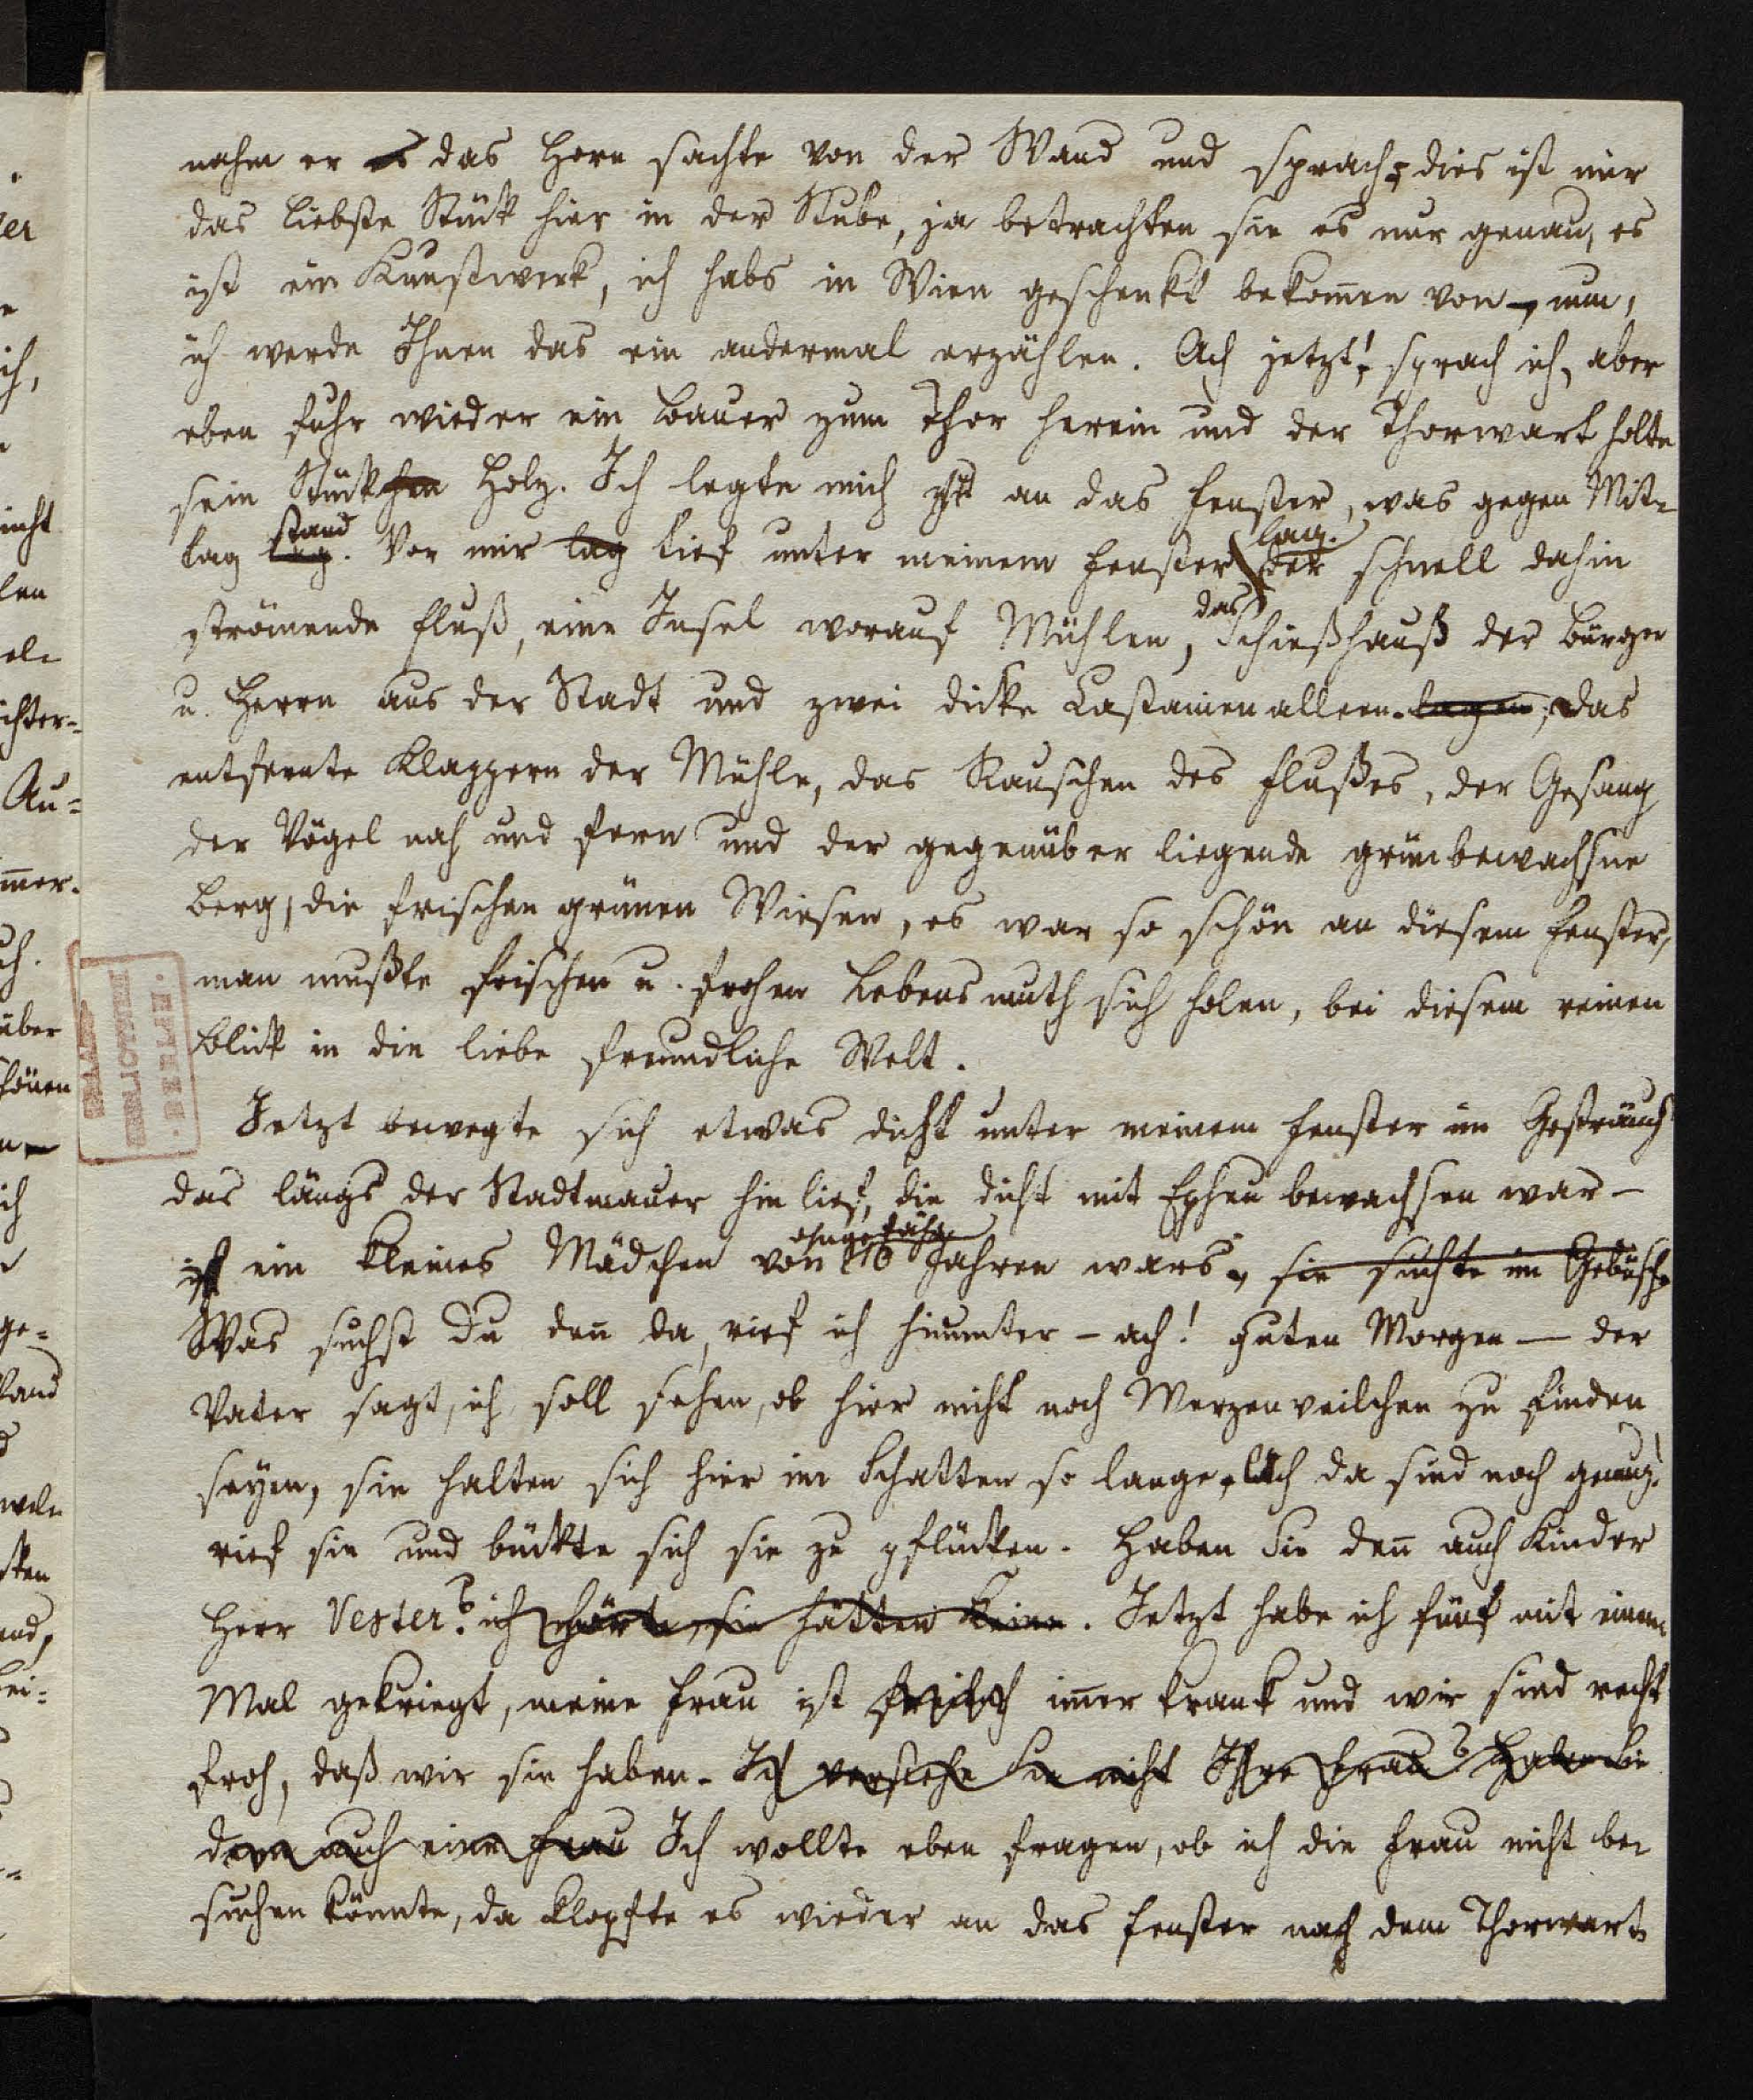 nahm er es das Horn sachte von der Wand und sprach, dies ist mir
das liebste Stück hier in der Stube, ja betrachten sie es nur genau, es
ist ein Kunstwerk, ich habs in Wien geschenkt bekomen von –, nun,
ich werde Ihnen das ein andermal erzählen. Ach jetzt! sprach ich, aber
eben fuhr wieder ein Bauer zum Thor herein und der Thorwart holte
sein Stückchen Holz. Ich legte mich an das Fenster, was gegen Mit-
tag lag stand. Vor mir lag tief unter meinem Fenster lag. der schnell dahin
strömende Fluß, eine Insel worauf Mühlen, das Schießhauß der Bürger
u. Herrn aus der Stadt und zwei dicke Castanienalleen lagen; das
entfernte Klappern der Mühle, das Rauschen des Flußes, der Gesang
der Vögel nah und fern und der gegenüber liegende grünbewachsne
Berg, die frischen grünen Wiesen, es war so schön an diesem Fenster,
man mußte frischen u. frohen Lebensmuth sich holen, bei diesem reinen
Blick in die liebe freundliche Welt.
Jetzt bewegte sich etwas dicht unter meinem Fenster im Gesträuch
das längs der Stadtmauer hin lief, die dicht mit Epheu bewachsen war –
ein kleines Mädchen von ohngefähr 10 Jahren wars, sie suchte im Gebüsche
Was suchst Du den da, rief ich hinunter – ach! guten Morgen – der
Vater sagt, ich soll sehen, ob hier nicht noch Merzenveilchen zu finden
seyen, sie halten sich hier im Schatten so lange, ach da sind noch genug!
rief sie und bückte sich sie zu pflücken. Haben Sie den auch Kinder
Herr Vester? ich hörte, sie hätten keine. Jetzt habe ich fünf mit einem
Mal gekriegt, meine Frau ist freilich imer krank und wir sind recht
froh, daß wir sie haben. Ich verstehe Sie nicht Ihre Frau? Haben Sie
denn auch eine Frau Ich wollte eben fragen, ob ich die Frau nicht be-
suchen könnte, da klopfte es wieder an das Fenster nach dem Thorwart